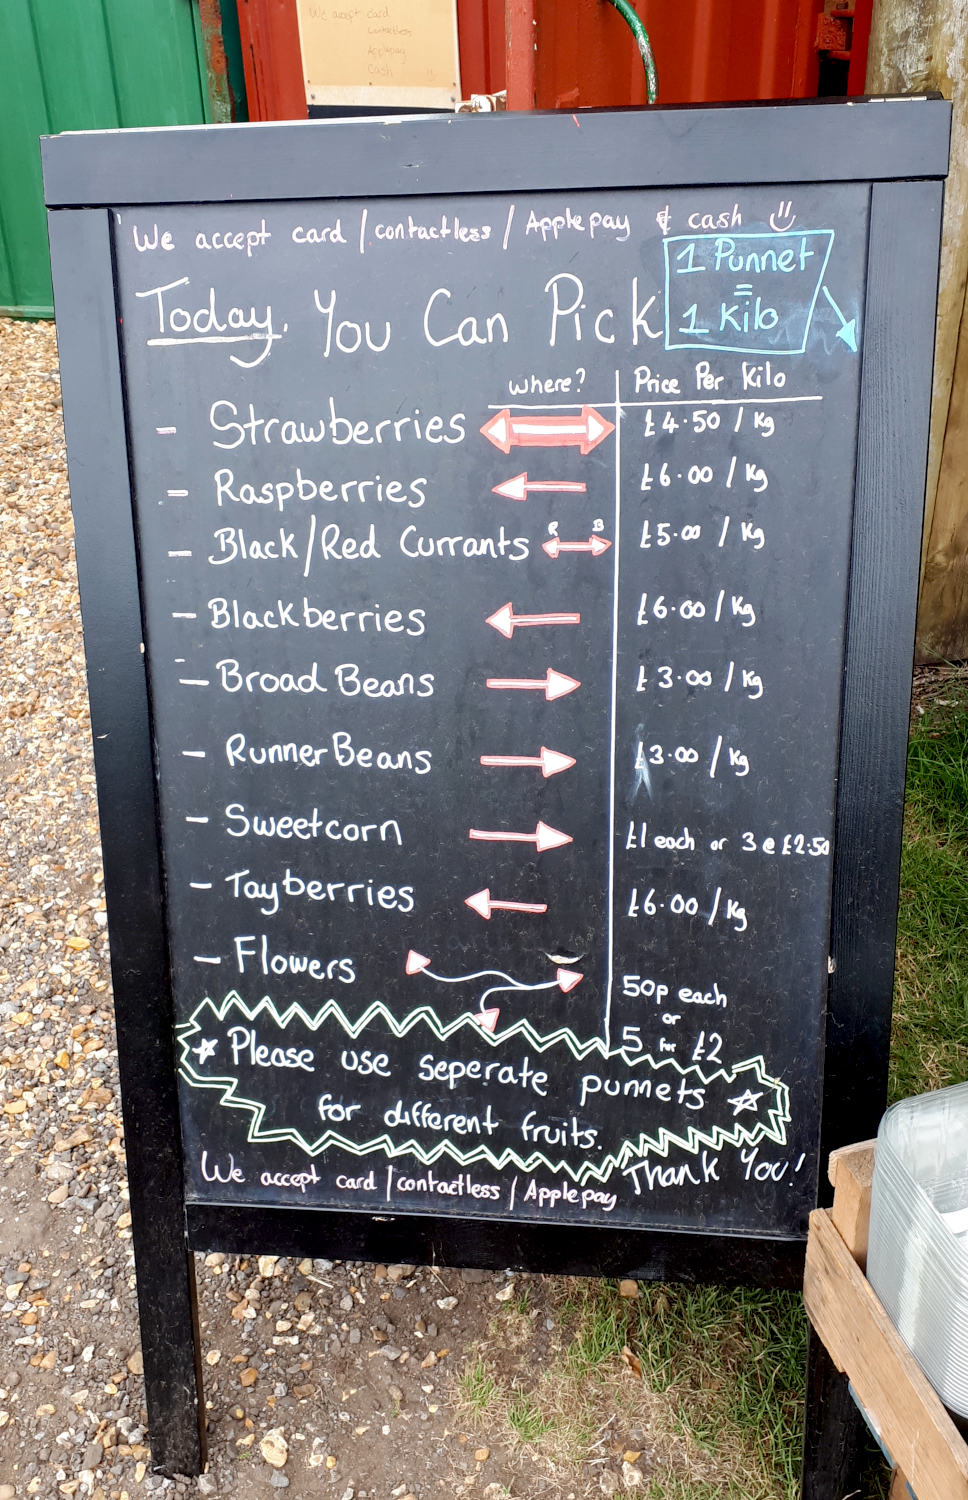 We accept card
contactless
Applepay
Cash
We accept card / contactless / Applepay & cash
1 Punnet
=
1 Kilo
Today, You Can Pick
where? Price Per Kilo
- Strawberries £4.50 / Kg
- Raspberries £6.00 / Kg
R B
- Black/Red Currants £5.00 / Kg
- Blackberries £6.00 / Kg
- Broad Beans £3.00 / Kg
- Runner Beans £3.00 / Kg
- Sweetcorn £1 each or 3 @ £2.50
- Tayberries £6.00 / Kg
- Flowers 50p each
or
5 for £2
Please use seperate punnets
for different fruits.
Thank You!
We accept card / contactless / Applepay